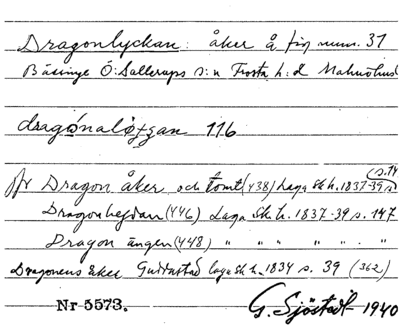 Dragonlyckan: åker å fig num. 31
Bäsinge Ö: Sallerups s:n Frosta h:d Malmöhus
dragónaløkkan 116
(s. 14
jfr Dragon åker och tomt (438) Laga sk h. 1837-39 s.
Dragonhejdan (446) Laga sk. h. 1837-39 s. 147
Dragon ängen (448) " " " " " "
Dragonens åker Guddastad laga sk h. 1834 s. 39 (362)
Nr 5573. G. Sjöstedt 1940